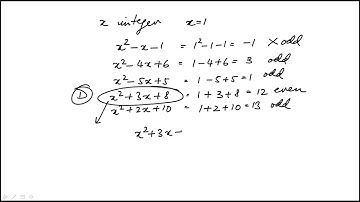 x integer x=1
x²-x-1 = 1²-1-1 = -1 ×odd
x²-4x+6 = 1-4+6 = 3 odd
x²-5x+5 = 1-5+5 = 1 odd
D x²+3x+8 = 1+3+8 = 12 even
x²+2x+10 = 1+2+10 = 13 odd
x²+3x-